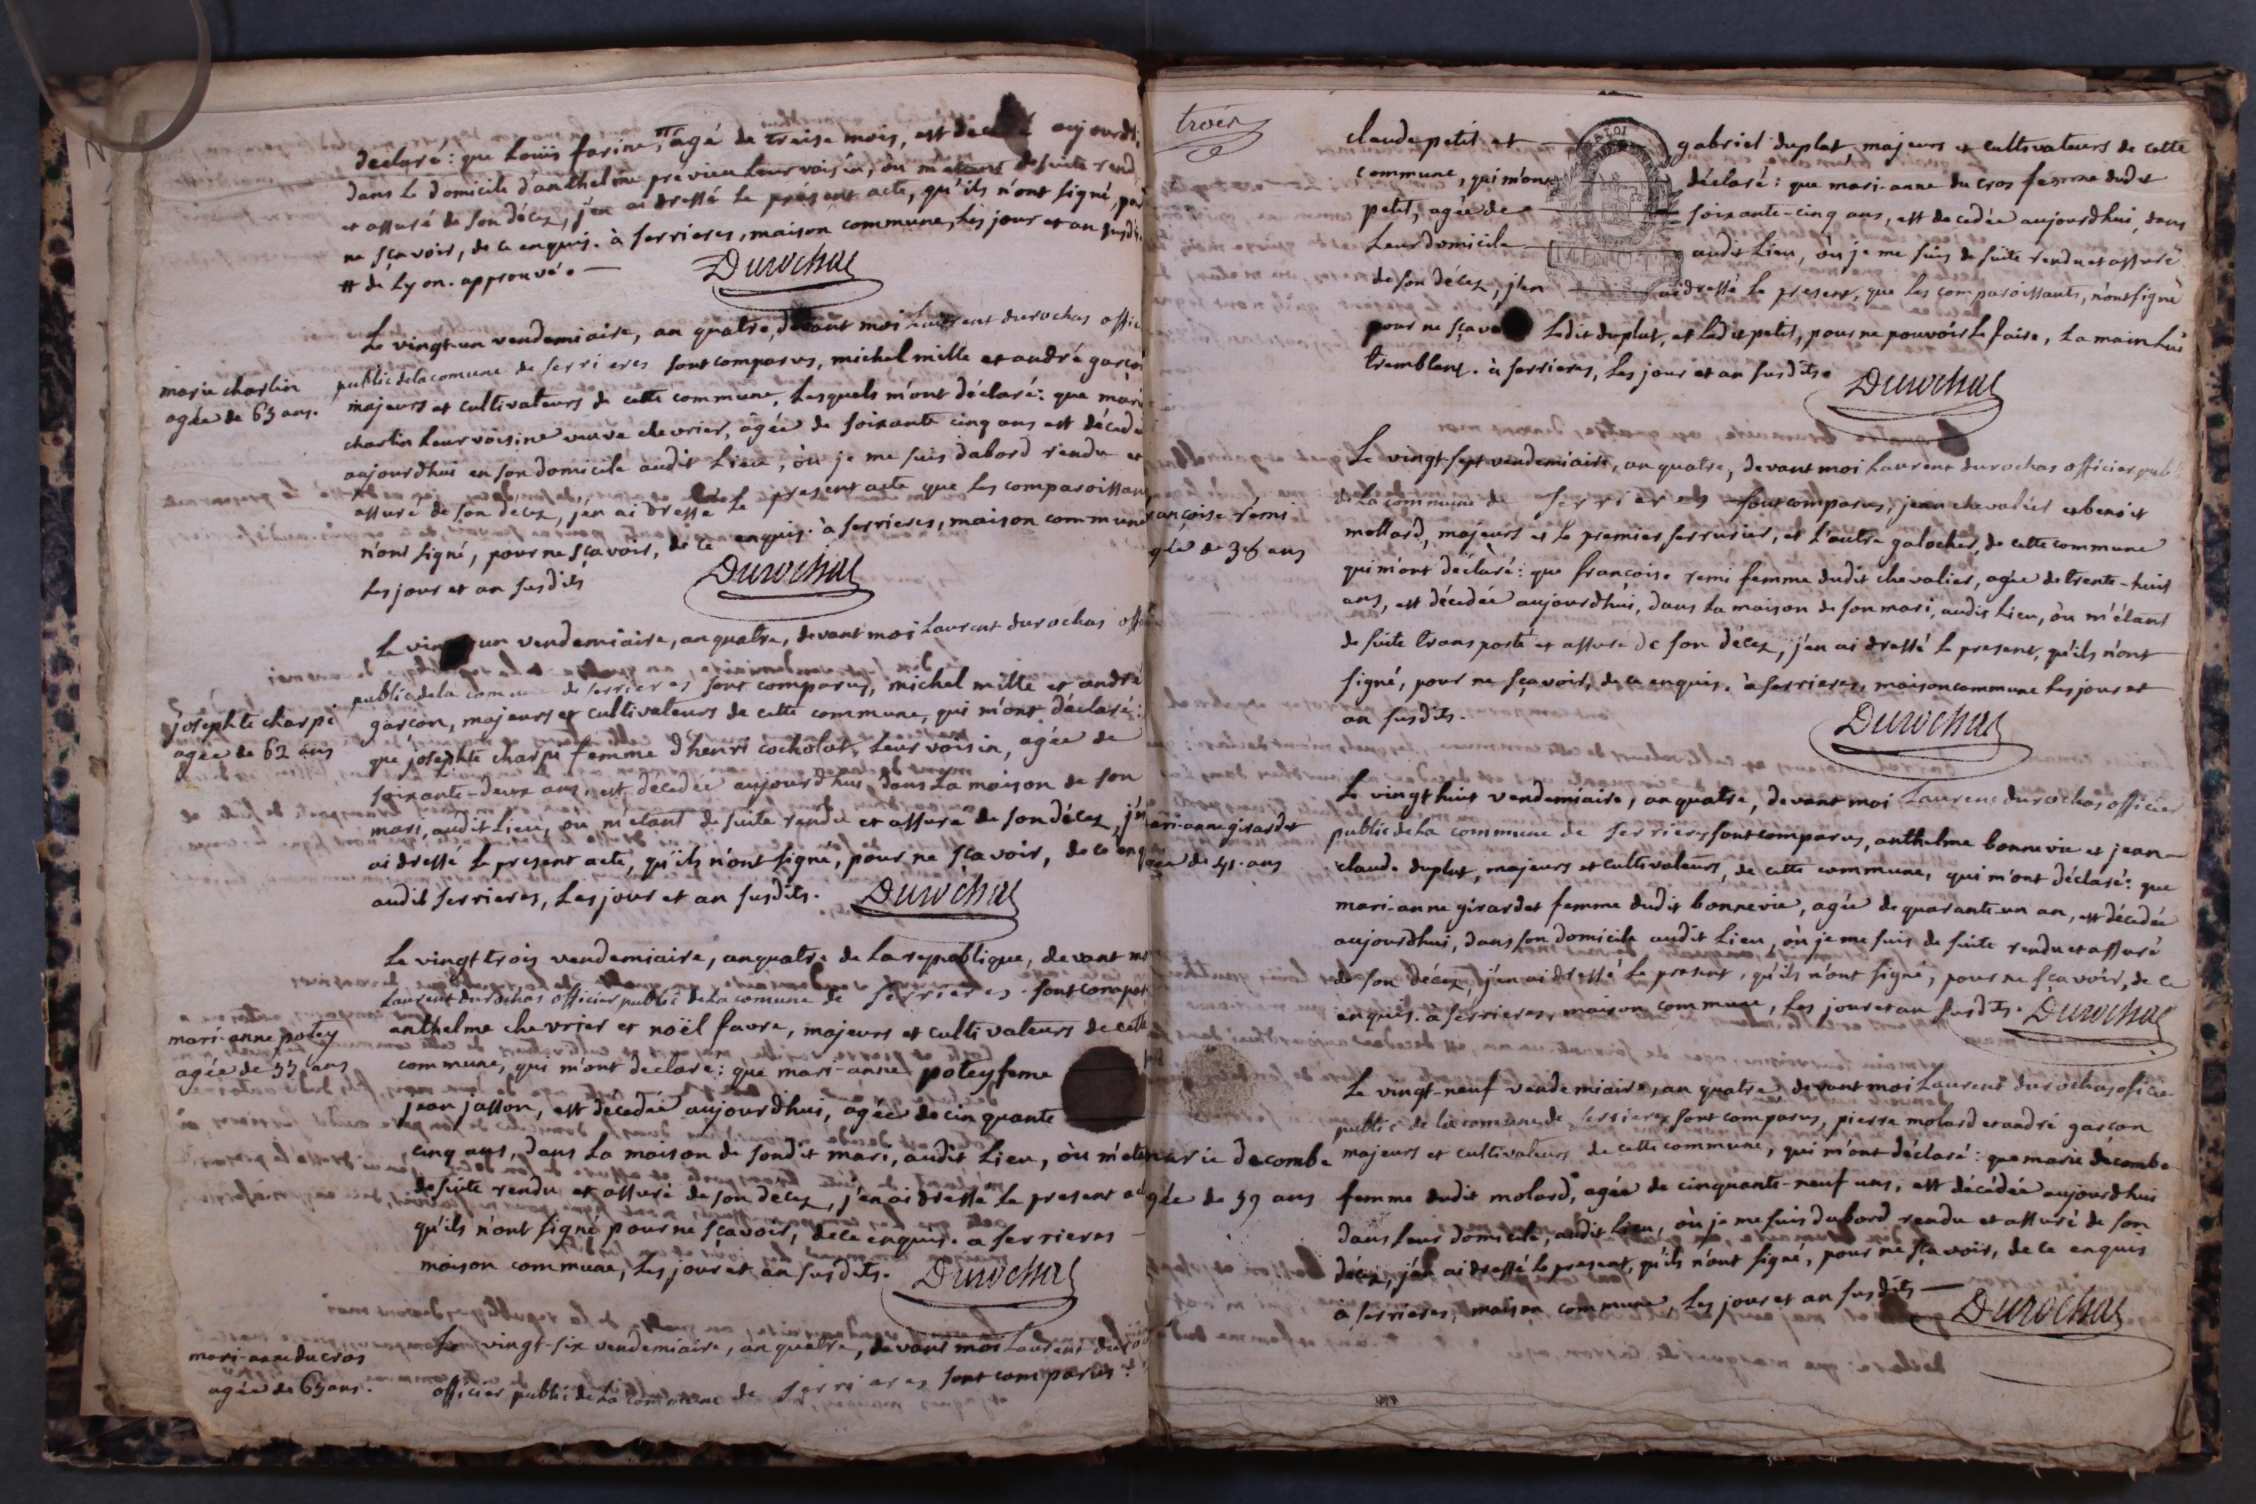 declaré: que Louis farine, # agé de treise mois, est decedé aujourdh
dans le domicile d'anthelme previeu leur voisin, où m'etant de suite rend
et assuré de son décez, j'en ai dressé le présent acte, qu'ils n'ont signé, po
ne sçavoir, de ce enquis. à serrieres, maison commune, les jour et an susdits.
# de Lyon. approuvé.
Durochat
Le vingt-un vendemiaire, an quatre, devant moi Laurent durochas offic
public de la comune de serrieres sont comparus, michel mille et andré garço
marie charlin
agée de 65 ans.
majeurs et cultivateurs de cette commune, Lesquels m'ont déclaré: que mari
charlin leur voisine veuve chevrier, âgée de soixante cinq ans est décedé
aujourdhui en son domicile audit Lieu, où je me suis dabord rendu et
assuré de son decez, j'en ai dressé le present acte que les comparoissan
n'ont signé, pour ne sçavoir, de ce enquis. à serrieres, maison commune
les jour et an susdits
Durochat
Le vingt un vendemiaire, an quatre, devant moi Laurent durochas offi
public de la comune de serrieres sont comparus, michel mille et andré
josephte charpi
agée de 62 ans
garçon, majeurs et cultivateurs de cette commune, qui m'ont déclaré:
que josephte charpi femme d'henri cocholat, leur voisin, agée de
soixante-deux ans, est decedée aujourd'hui, dans la maison de son
mari, audit Lieu, où m'etant de suite rendu et assuré de son décez, j'
ai dressé le present acte, qu'ils n'ont signé, pour ne sçavoir, de ce enq
audit serrieres, les jour et an susdits.
Durochat
Le vingt trois vendemiaire, an quatre de la republique, devant m
Laurent durochas officier public de la comune de serrieres sont compar
mari-anne potey
agée de 55 ans
anthelme chevrier et noël favre, majeurs et cultivateurs de cette
commune, qui m'ont declare: que mari-anne potey feme
jean jasson, est decedée aujourd'hui, agée de cinquante
cinq ans, dans la maison de sondit mari, audit Lieu, où m'eta
de suite rendu et assuré de son decez, j'en ai dressé le present ac
qu'ils n'ont signé pour ne sçavoir, de ce enquis. a serrieres
maison commune, les jour et an susdits.
Durochat
mari-anne du cros
agée de 65 ans.
Le vingt-six vendemiaire, an quatre, devant moi Laurent duro
officier public de la commune de serrieres sont comparus:
trois
claude petit et gabriel duplat majeurs et cultivateurs de cette
commune, qui m'ont déclaré: que mari-anne du cros femme dudit
petit, agée de soixante-cinq ans, est decedée aujourdhui, dans
leur domicile audit Lieu, où je me suis de suite rendu et assuré
de son décez, j'en ai dressé le present, que les comparoissants, n'ont signé
pour ne sçavoir ledit duplat, et ledit petit, pour ne pouvoir le faire, la main lui
tremblant. à serrieres, les jour et an susdits.
Durochat
Le vingt-sept vendemiaire, an quatre, devant moi Laurent durochas officier publ
de la commune de serrieres sont comparus, jean chevalier et benoit
ançoise remi
gée de 38 ans
mottard, majeurs et le premier serrurier, et l'autre galocher, de cette commune
qui m'ont déclaré: que françoise remi femme dudit chevalier, agée de trente-huit
ans, est décedée aujourdhui, dans la maison de son mari, audit Lieu, où m'étant
de suite transporté et assuré de son décez, j'en ai dressé le present, qu'ils n'ont
signé, pour ne sçavoir, de ce enquis. à serrieres, maison commune les jour et
an susdits.
Durochat
Le vingt huit vendemiaire, an quatre, devant moi Laurent durochas officier
public de la commune de serrieres sont comparus, anthelme bonnevie et jean
ari-anne girardet
ée de 41 ans
claude duplat, majeurs et cultivateurs, de cette commune, qui m'ont déclaré: que
mari-anne girardet femme dudit bonnevie, agée de quarante-un an, est décedée
aujourdhui, dans son domicile audit Lieu, où je me suis de suite rendu et assuré
de son décez, j'en ai dressé le present, qu'ils n'ont signé, pour ne sçavoir, de ce
enquis. a serrieres, maison commune, les jour et an susdits.
Durochat
Le vingt-neuf vendemiaire, an quatre, devant moi Laurent durochas oficie
public de la comune de serrieres sont comparus, pierre molard et andré garçon
arie decombe
gée de 59 ans
majeurs et cultivateurs de cette commune, qui m'ont déclaré: que marie decombe
femme dudit molard, agée de cinquante-neuf ans, est décédée aujourdhui
dans leur domicile, audit Lieu, où je me suis dabord rendu et assuré de son
décez, j'en ai dressé le present, qu'ils n'ont signé, pour ne sçavoir, de ce enquis
a serrieres, maison commune, les jour et an susdits
Durochat